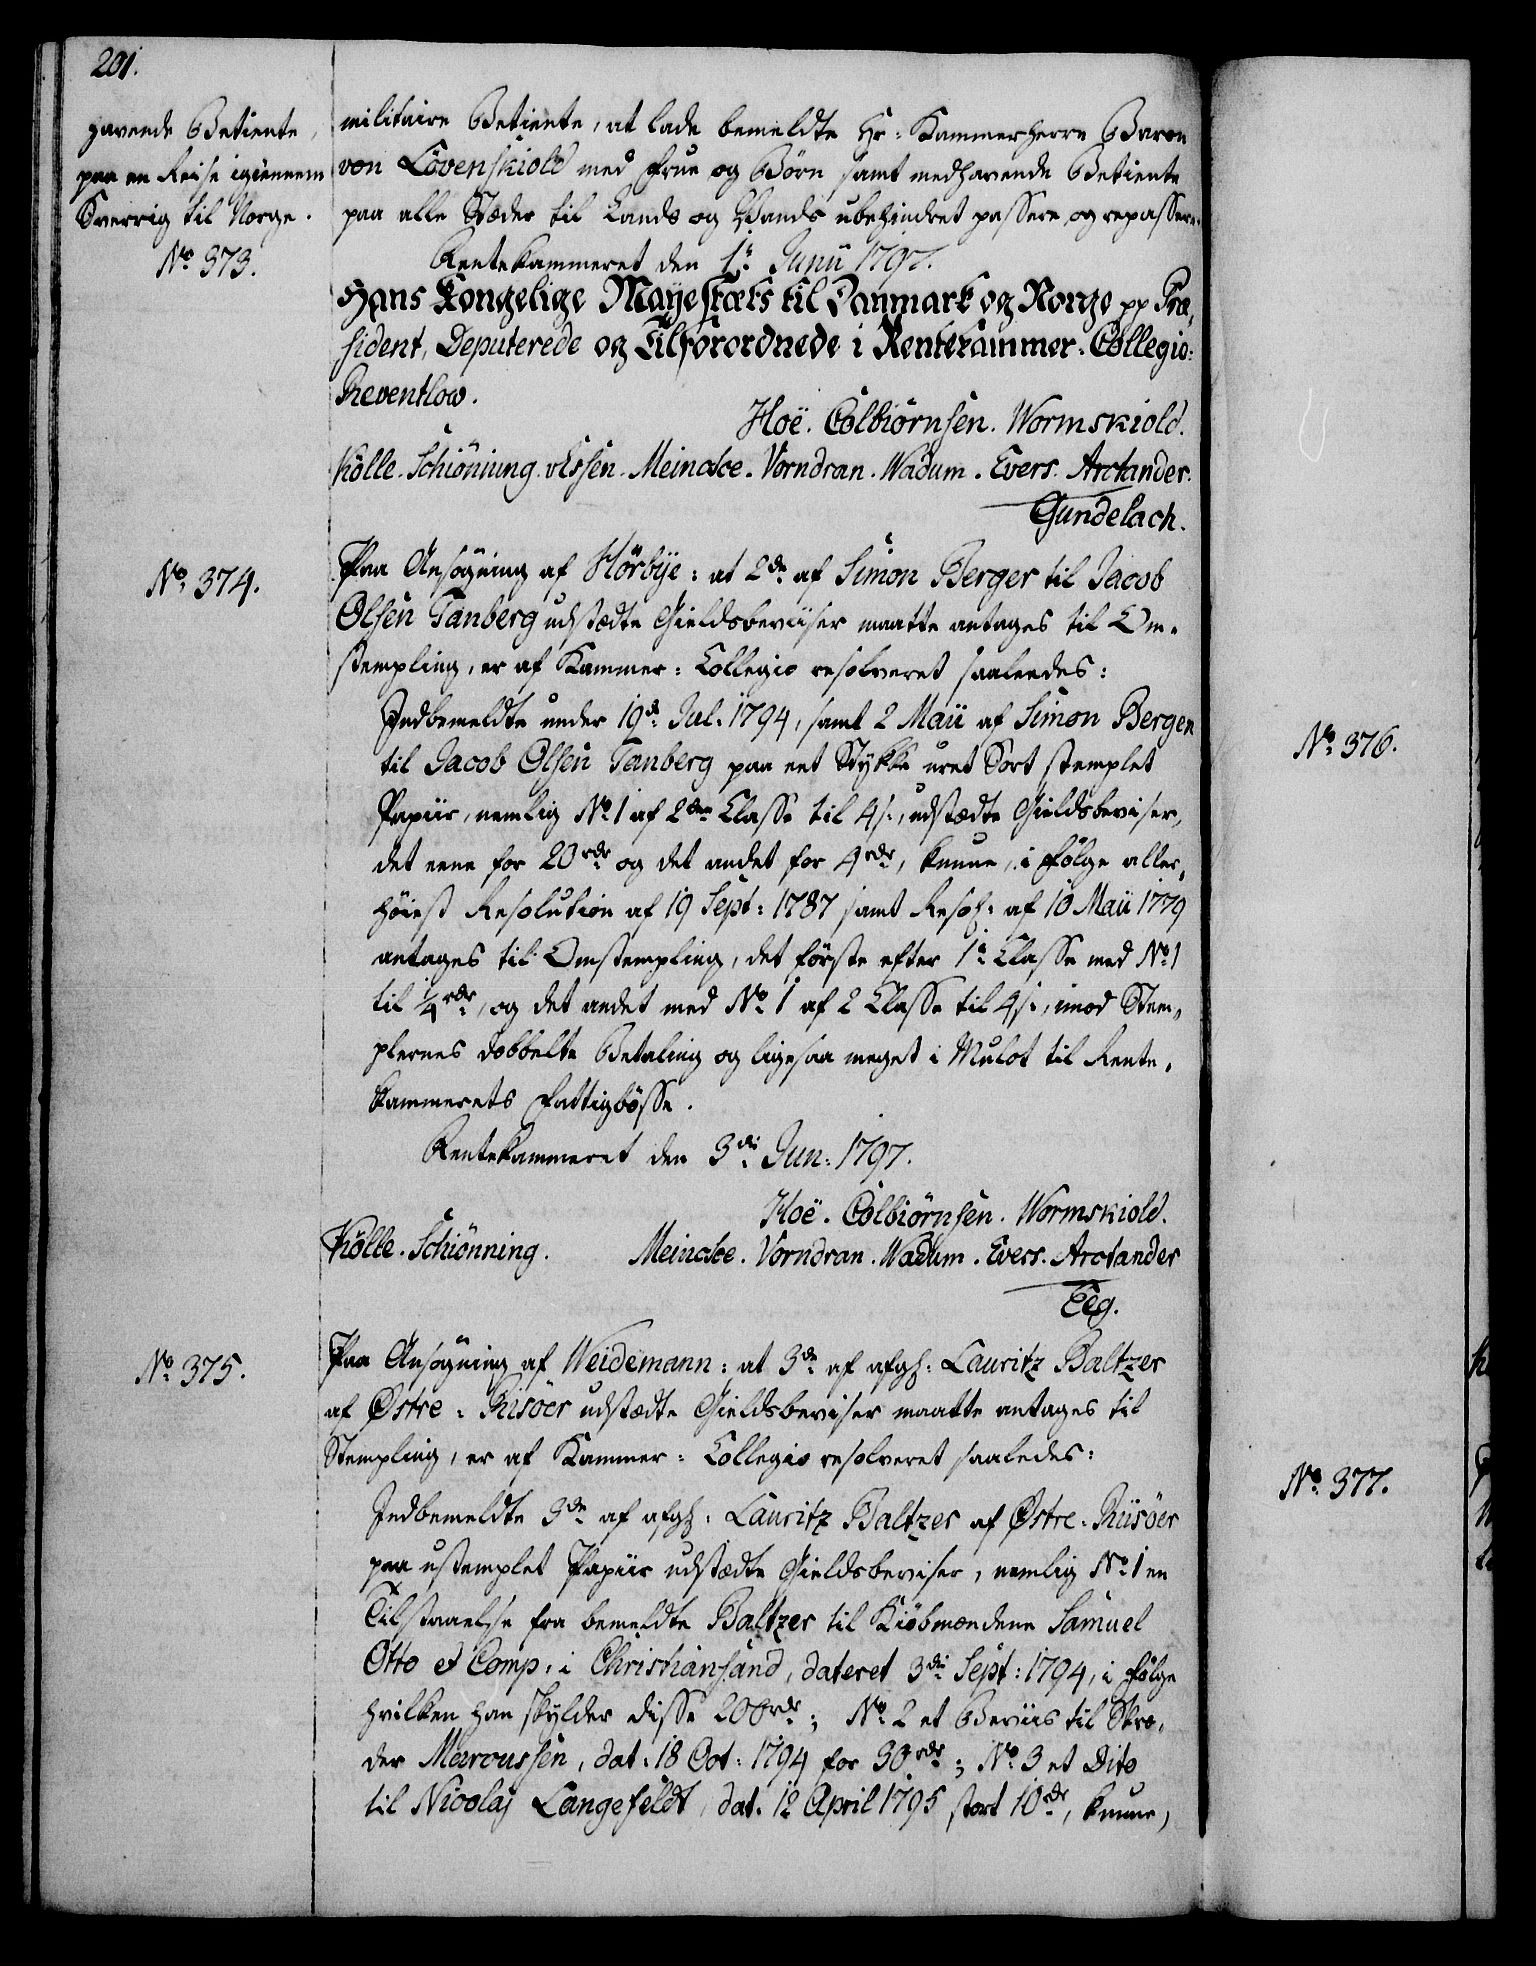 201.
havende Betiente,
paa en Reise igiennem
Sverrig til Norge.
No 373.
militaire Betiente, at lade bemeldte Hr: Kammerherre Baron
von Lövenskiold med Frue og Börn samt medhavende Betiente
paa alle Stæder til Lands og Vands ubehindret passere og repassere.
Rentekammeret den 1te Junii 1797.
Hans Kongelige Mayestæts til Danmark og Norge pp Præ,
sident, Deputerede og Tilforordnede i Rentekammer-Collegio:
Reventlow.
Hoë. Colbiörnsen. Wormskiold.
Kölle. Schiönning. vEssen. Meincke. Vorndran. Wadum. Evers. Arctander.
Gundelach.
No 374.
Paa Ansøgning af Hörbÿe: at 2de af Simon Berger til Jacob
Olsen Tanberg udstædte Gieldsbeviiser maatte antages til Om-
stempling, er af Kammer-Collegio resolveret saaleedes:
Indbemeldte under 19de Jul: 1794, samt 2 Maii af Simon Bergen
til Jacob Olsen Tanberg paa eet Stykke uret Sort stemplet
Papiir, nemlig No 1 af 2den Classe til 4 s:, udstædte Gieldsbeviser,
det eene for 20 rdr og det andet for 4 rdr, kunne, i Fölge aller,
höiest Resolution af 19 Sept: 1787 samt Resol: af 10 Maii 1779
antages til Omstempling, det förste efter 1te Classe med No 1
til 1/4 rdr, og det andet med No 1 af 2 Classe til 4 s:, imod Stem,
plernes dobbelte Betaling og ligesaa meget i Mulct til Rente,
kammerets Fattigbösse.
Rentekammeret den 3die Jun: 1797.
Hoë. Colbiörnsen. Wormskiold.
Kölle. Schiönning. Meincke. Vorndran. Wadum. Evers. Arctander
Eeg.
No 375.
Paa Ansøgning af Weidemann: at 3de af afgl: Lauritz Baltzer
af Østre-Riisöer udstædte Gieldsbeviser maatte antages til
Stempling, er af Kammer-Collegio resolveret saaledes:
Indbemeldte 3de af afgl: Lauritz Baltzer af Østre-Riisöer
paa ustemplet Papiir udstædte Gieldsbeviser, nemlig No 1 en
Tilstaaelse fra bemeldte Baltzer til Kiöbmændene Samuel
Otto et Comp. i Christiansand, dateret 3die Sept: 1794, i Fölge
hvilken han skylder disse 200 rdr; No 2 et Beviis til Skræ,
der Marcussen, dat: 18 Oct: 1794 for 30 rdr; No 3 et Dito
til Nicolaj Langefeldt, dat. 12 April 1795 stort 10 rdr, kunne,
No 376.
No 377.